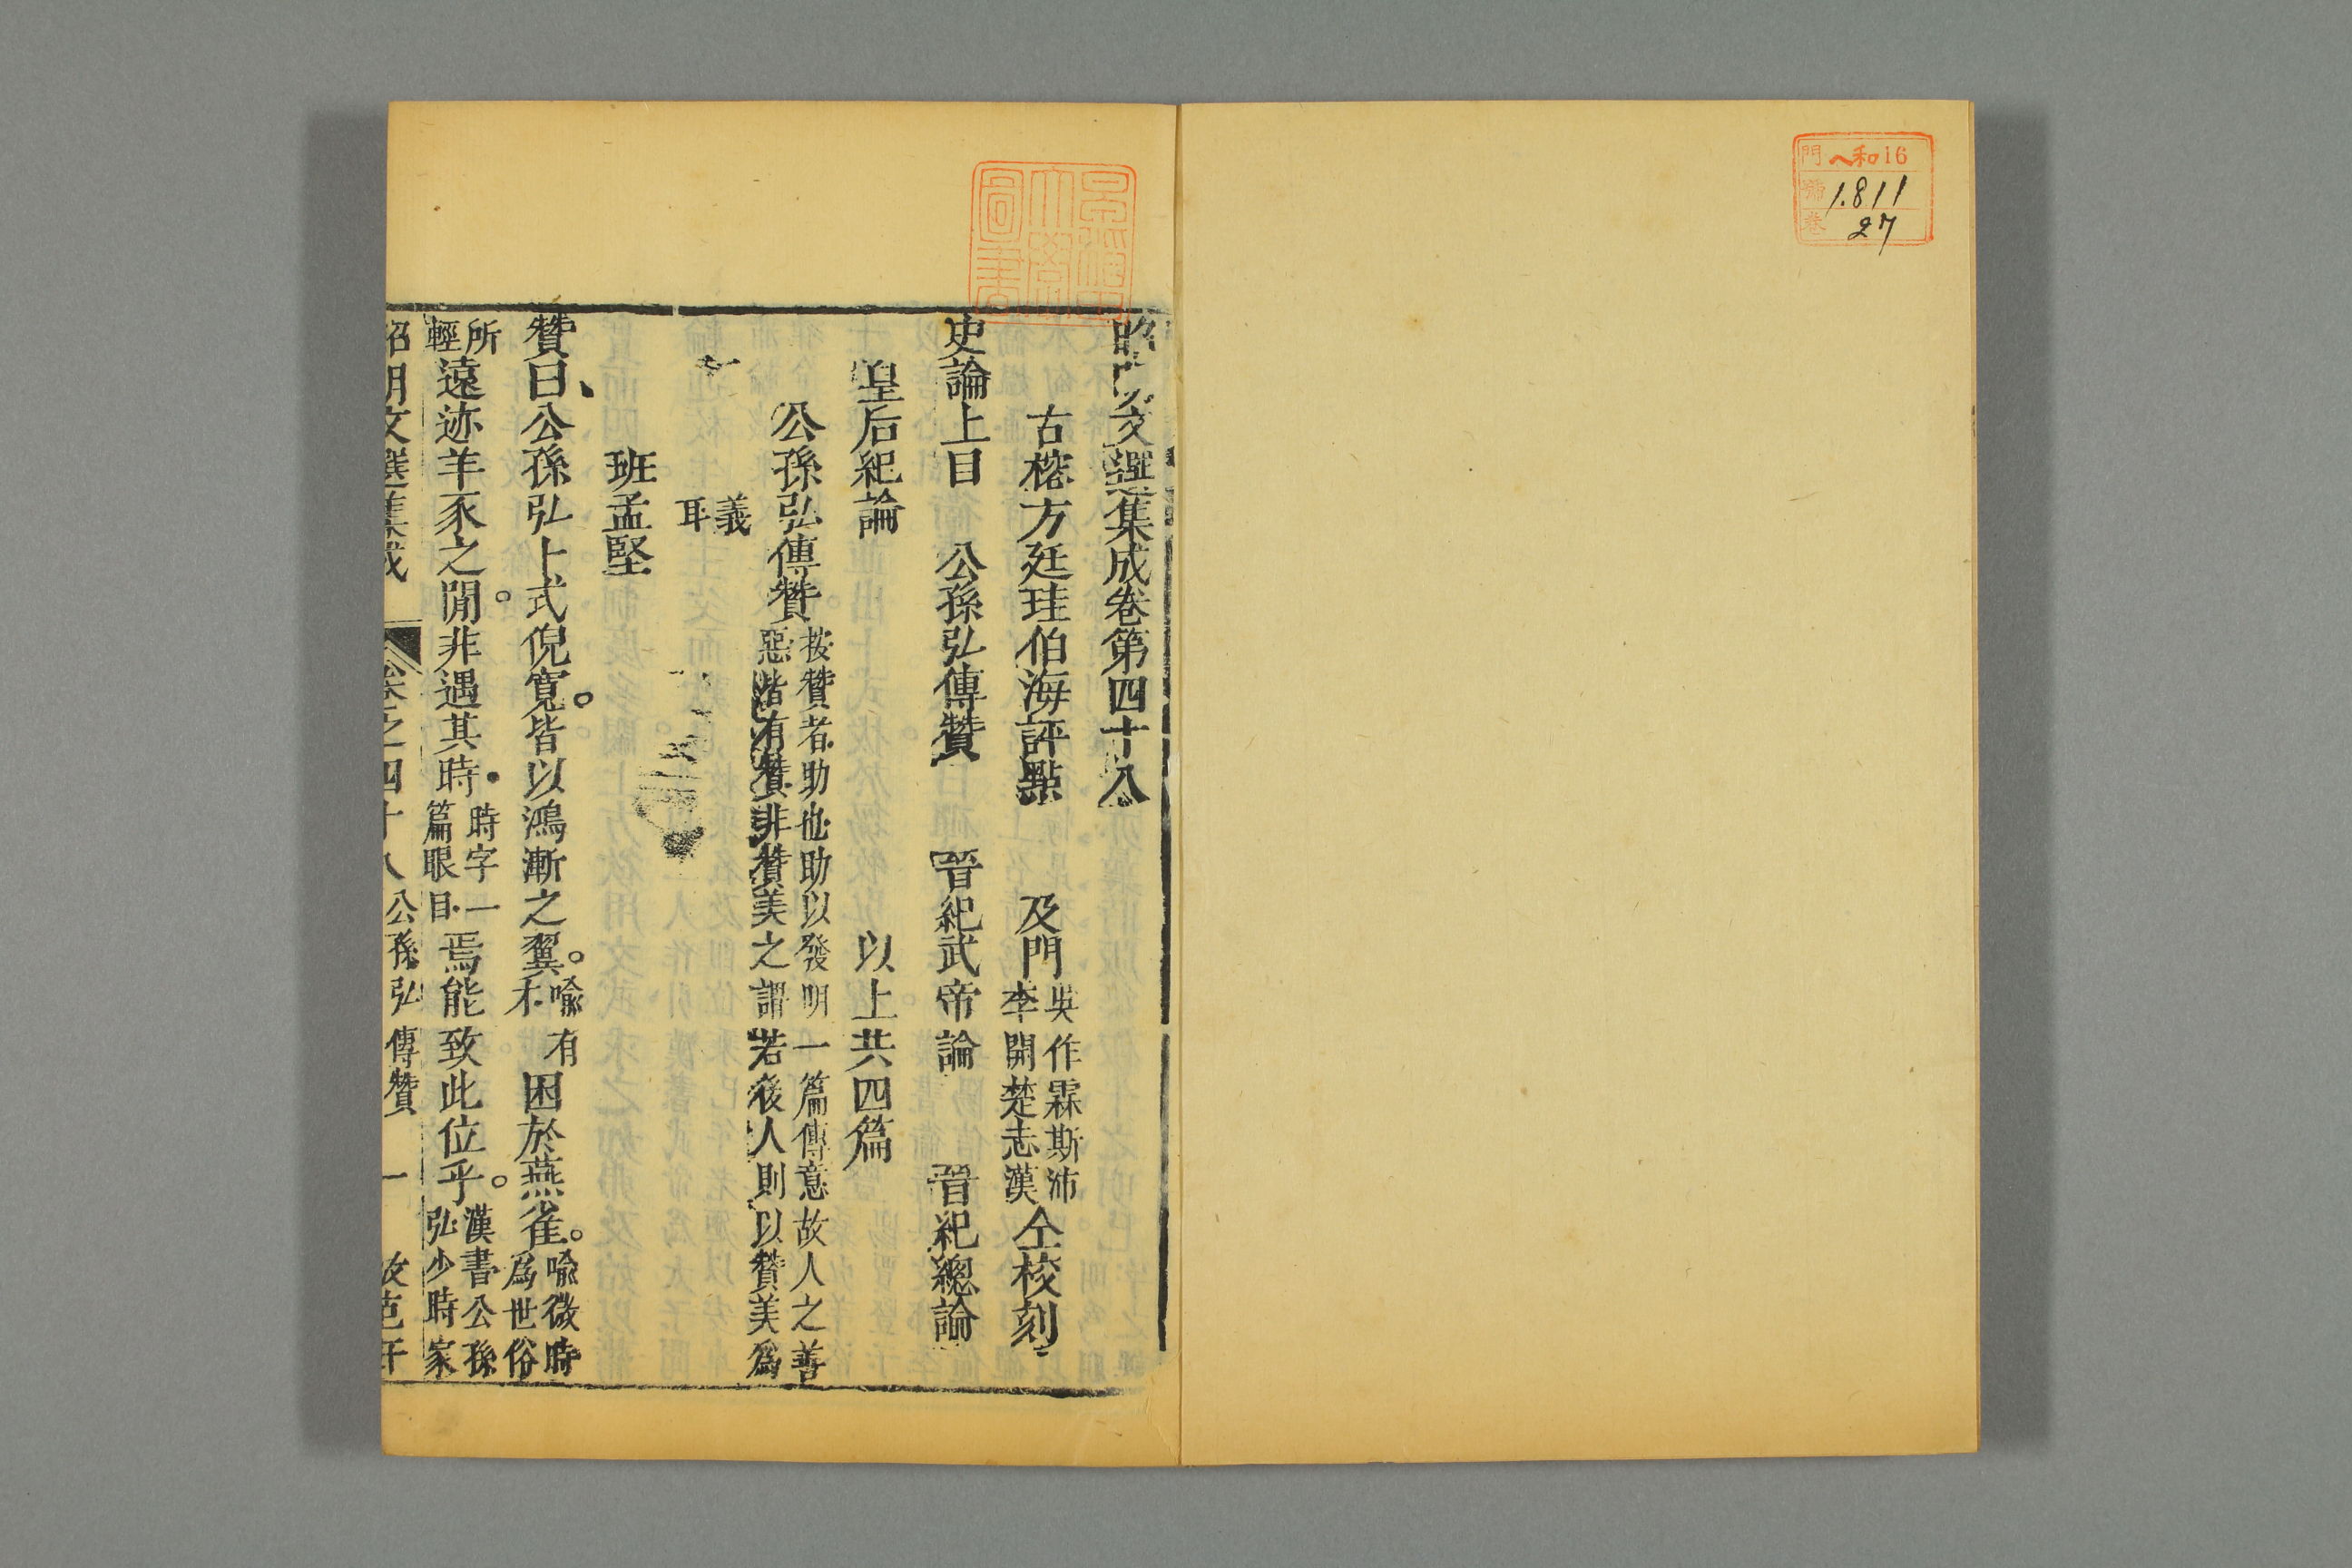 門 八和16
號 1.811
卷 27
昭明文選集成卷第四十八
古榕方廷珪伯海評點 及門 吳作霖斯沛 李開楚志漢 仝梭刻
史論上目 公孫弘傳贊 晉紀武帝論 晉紀總論
皇后紀論 以上共四篇
公孫弘傳贊 按贊者助也助以發明一篇傳意故人之善
惡皆有贊非贊美之謂若後人則以贊美為
義
耳
班孟堅
贊曰公孫弘卜式倪寬皆以鴻漸之翼 喻有
困於燕雀 喻微時
為世俗
所
輕 遠迹羊豕之閒非遇其時 時字一
篇眼目 焉能致此位乎 漢書公孫
弘少時家
昭明文選集成 卷之四十八 公孫弘傳贊 一